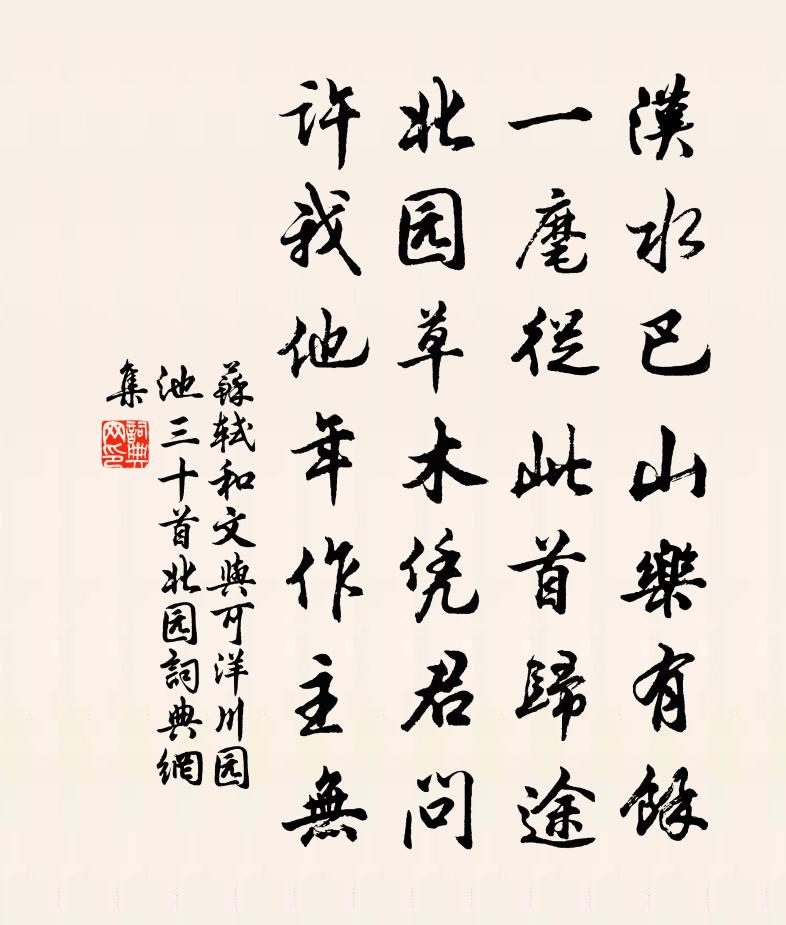 漢水巴山樂有餘
一麾從此首歸途
北园草木凭君問
許我他年作主無
蘇軾和文與可洋川园
池三十首北园詞典網
集
詞典
网印